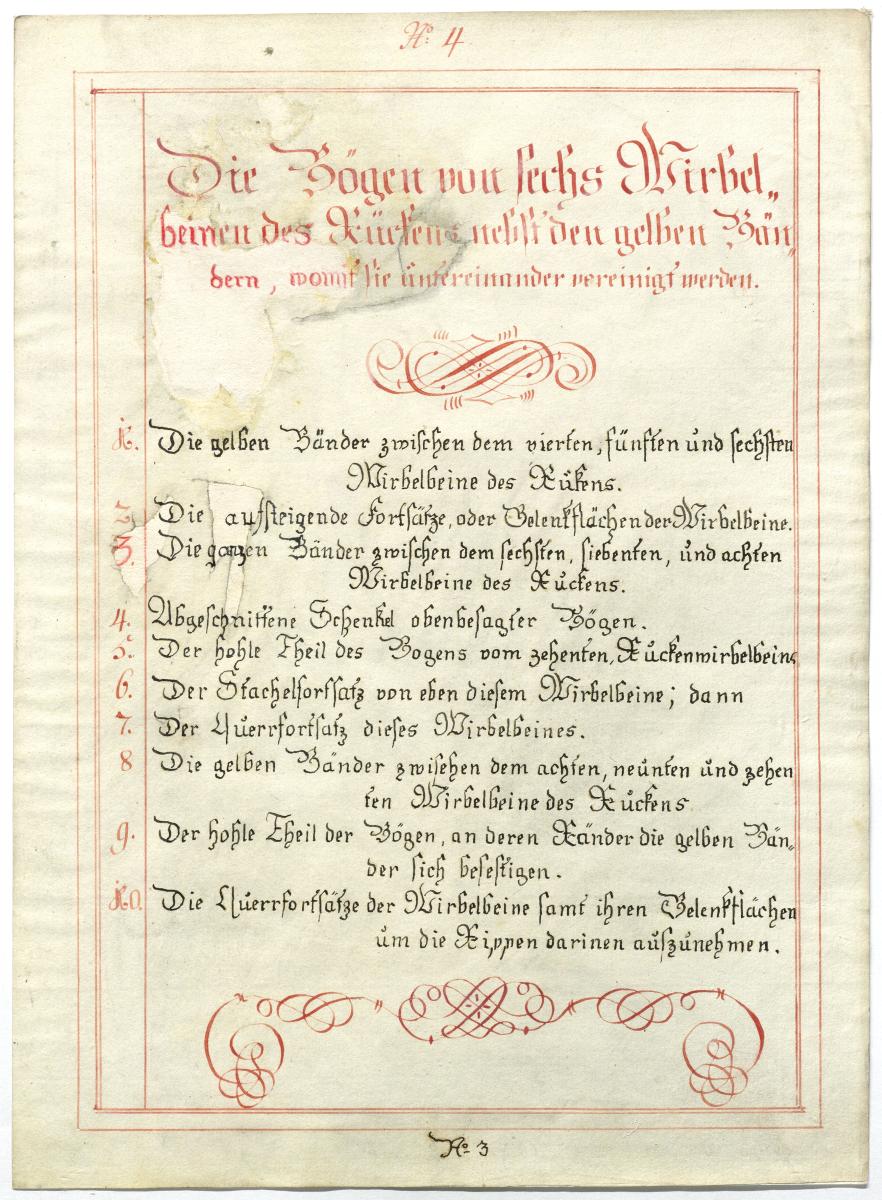 No: 4
Die Bögen von sechs Wirbel„
beinen des Rückens nebst den gelben Bän„
dern, womit sie üntereinander vereinigt werden.
1. Die gelben Bänder zwischen dem vierten, fünften und sechsten
Wirbelbeine des Rükens.
2. Die aufsteigende Fortsätze, oder Gelenkflächen der Wirbelbeine.
3. Die ganzen Bänder zwischen dem sechsten, siebenten, und achten
Wirbelbeine des Ruckens.
4. Abgeschnittene Schenkel obenbesagter Bögen.
5. Der hohle Theil des Bogens vom zehenten, Ruckenwirbelbeins
6. Der Stachelfortsatz von eben diesem Wirbelbeine; dann
7. Der Querrfortsatz dieses Wirbelbeines.
8 Die gelben Bänder zwisehen dem achten, neünten und zehen
ten Wirbelbeine des Ruckens
9. Der hohle Theil der Bögen, an deren Ränder die gelben Bän„
der sich befestigen.
10. Die Querrfortsätze der Wirbelbeine samt ihren Gelenkflächen
um die Rippen darinen aufzunehmen.
No 3